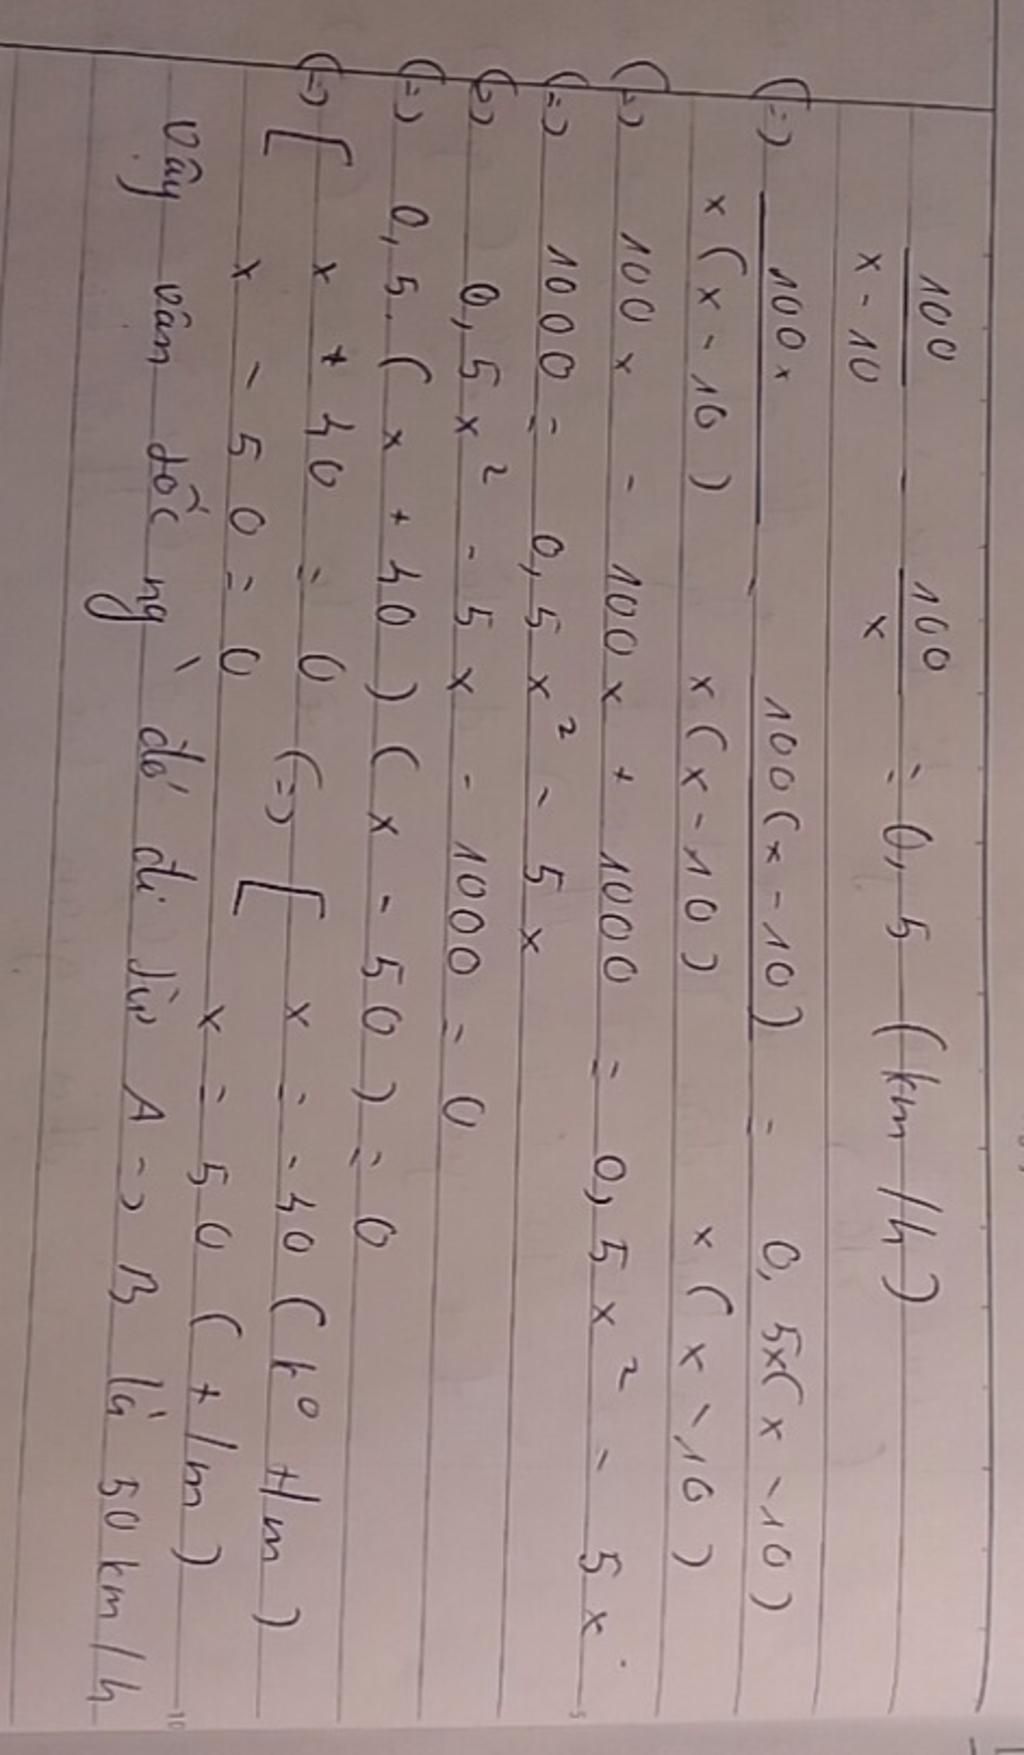 100 / x - 10 - 100 / x = 0,5 (km/h)
(=) 100x / x(x - 10) - 100(x - 10) / x(x - 10) = 0,5x(x - 10) / x(x - 10)
(=) 100x - 100x + 1000 = 0,5x² - 5x
(=) 1000 = 0,5x² - 5x
(=) 0,5x² - 5x - 1000 = 0
(=) 0,5.(x + 40)(x - 50) = 0
(=) [ x + 40 = 0 (=) [ x = -40 (kº t/m)
x - 50 = 0 x = 50 (t/m)
Vậy vân tốc ng` đó đi từ A -> B là 50km/h